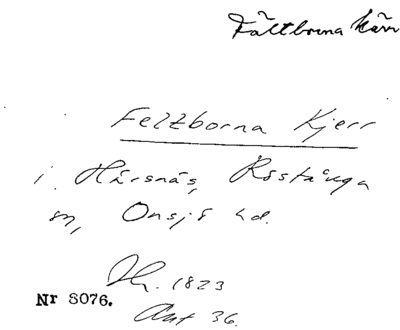 Fältborna kärr
Feltborna Kjerr
i Härsnäs, Röstånga
sn, Onsjö hd.
Nr 8076.
1823
Ant 36.